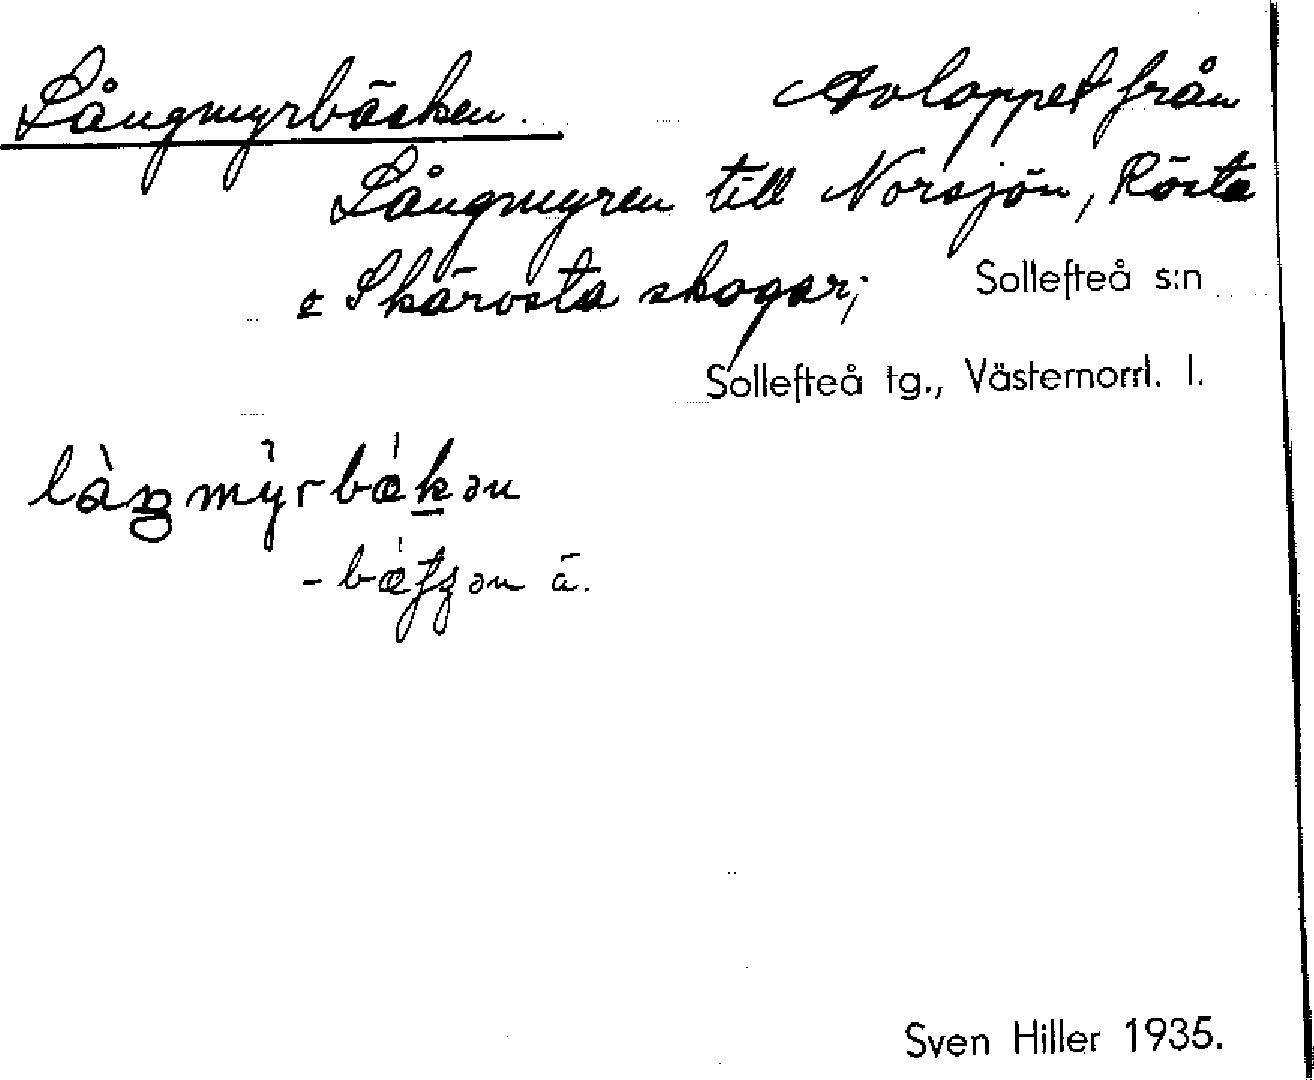 Långmyrbäcken. Avloppet från
Långmyren till Norsjön, Rösta
o Skärvsta skogar; Sollefteå s:n
Sollefteå tg., Västernorrl. l.
-bæ̀tʃən ä.
Sven Hiller 1935.